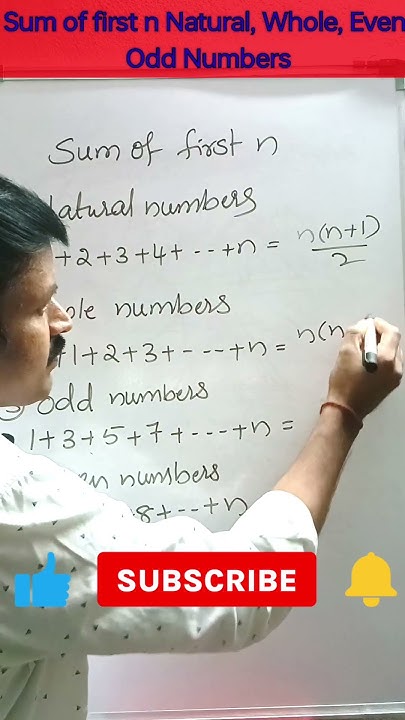 Sum of first n Natural, Whole, Even
Odd Numbers
Sum of first n
Natural numbers
+2+3+4+ ---+n = n(n+1)/2
numbers
+1+2+3+- --+n = n(n
odd numbers
1+3+5+7+---+n =
numbers
8+--+n
SUBSCRIBE